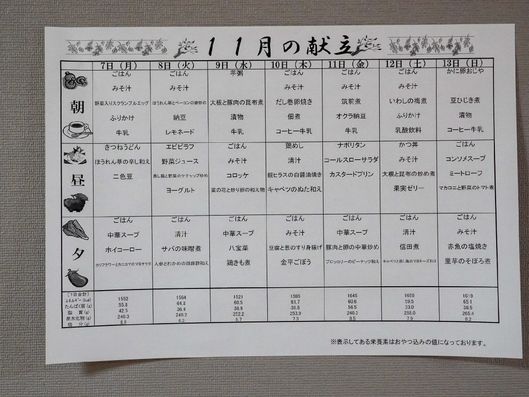 11月の献立
7日（月） 8日（火） 9日（水） 10日（木） 11日（金） 12日（土） 13日（日）
朝
ごはん ごはん 芋粥 ごはん ごはん ごはん かに卵おじや
みそ汁 みそ汁 みそ汁 みそ汁 みそ汁
野菜入りスクランブルエッグ ほうれん草とベーコンの 大根と豚肉の昆布煮 だし巻卵焼き 筑前煮 いわしの梅煮 豆ひじき煮
ふりかけ 納豆 漬物 佃煮 オクラ納豆 ふりかけ 漬物
牛乳 レモネード 牛乳 コーヒー牛乳 牛乳 乳酸飲料 コーヒー牛乳
昼
きつねうどん エビピラフ ごはん 鶏めし ナポリタン かつ丼 ごはん
ほうれん草の辛し和え 野菜ジュース みそ汁 清汁 コールスローサラダ みそ汁 コンソメスープ
二色豆 蒸し鶏と野菜のケチャップ炒め コロッケ 銀ヒラスの白醤油焼き カスタードプリン 大根と昆布の炒め煮 ミートローフ
ヨーグルト 菜の花と炒り卵の和え物 キャベツのぬた和え 果実ゼリー マカロニと野菜のトマト煮
夕
ごはん ごはん ごはん ごはん ごはん ごはん ごはん
中華スープ 清汁 中華スープ みそ汁 中華スープ 清汁 みそ汁
ホイコーロー サバの味噌煮 八宝菜 豆腐と葱のすり身揚げ 豚肉と卵の中華炒め 信田煮 赤魚の塩焼き
カリフラワーとカニカマのマヨサラダ 鶏きも煮 金平ごぼう ブロッコリーのピーナッツ和え 里芋のそぼろ煮
たんぱく質(g)
脂 質(g)
炭水化物(g)
塩 分(g)
※表示してある栄養素はおやつ込みの値になっております。